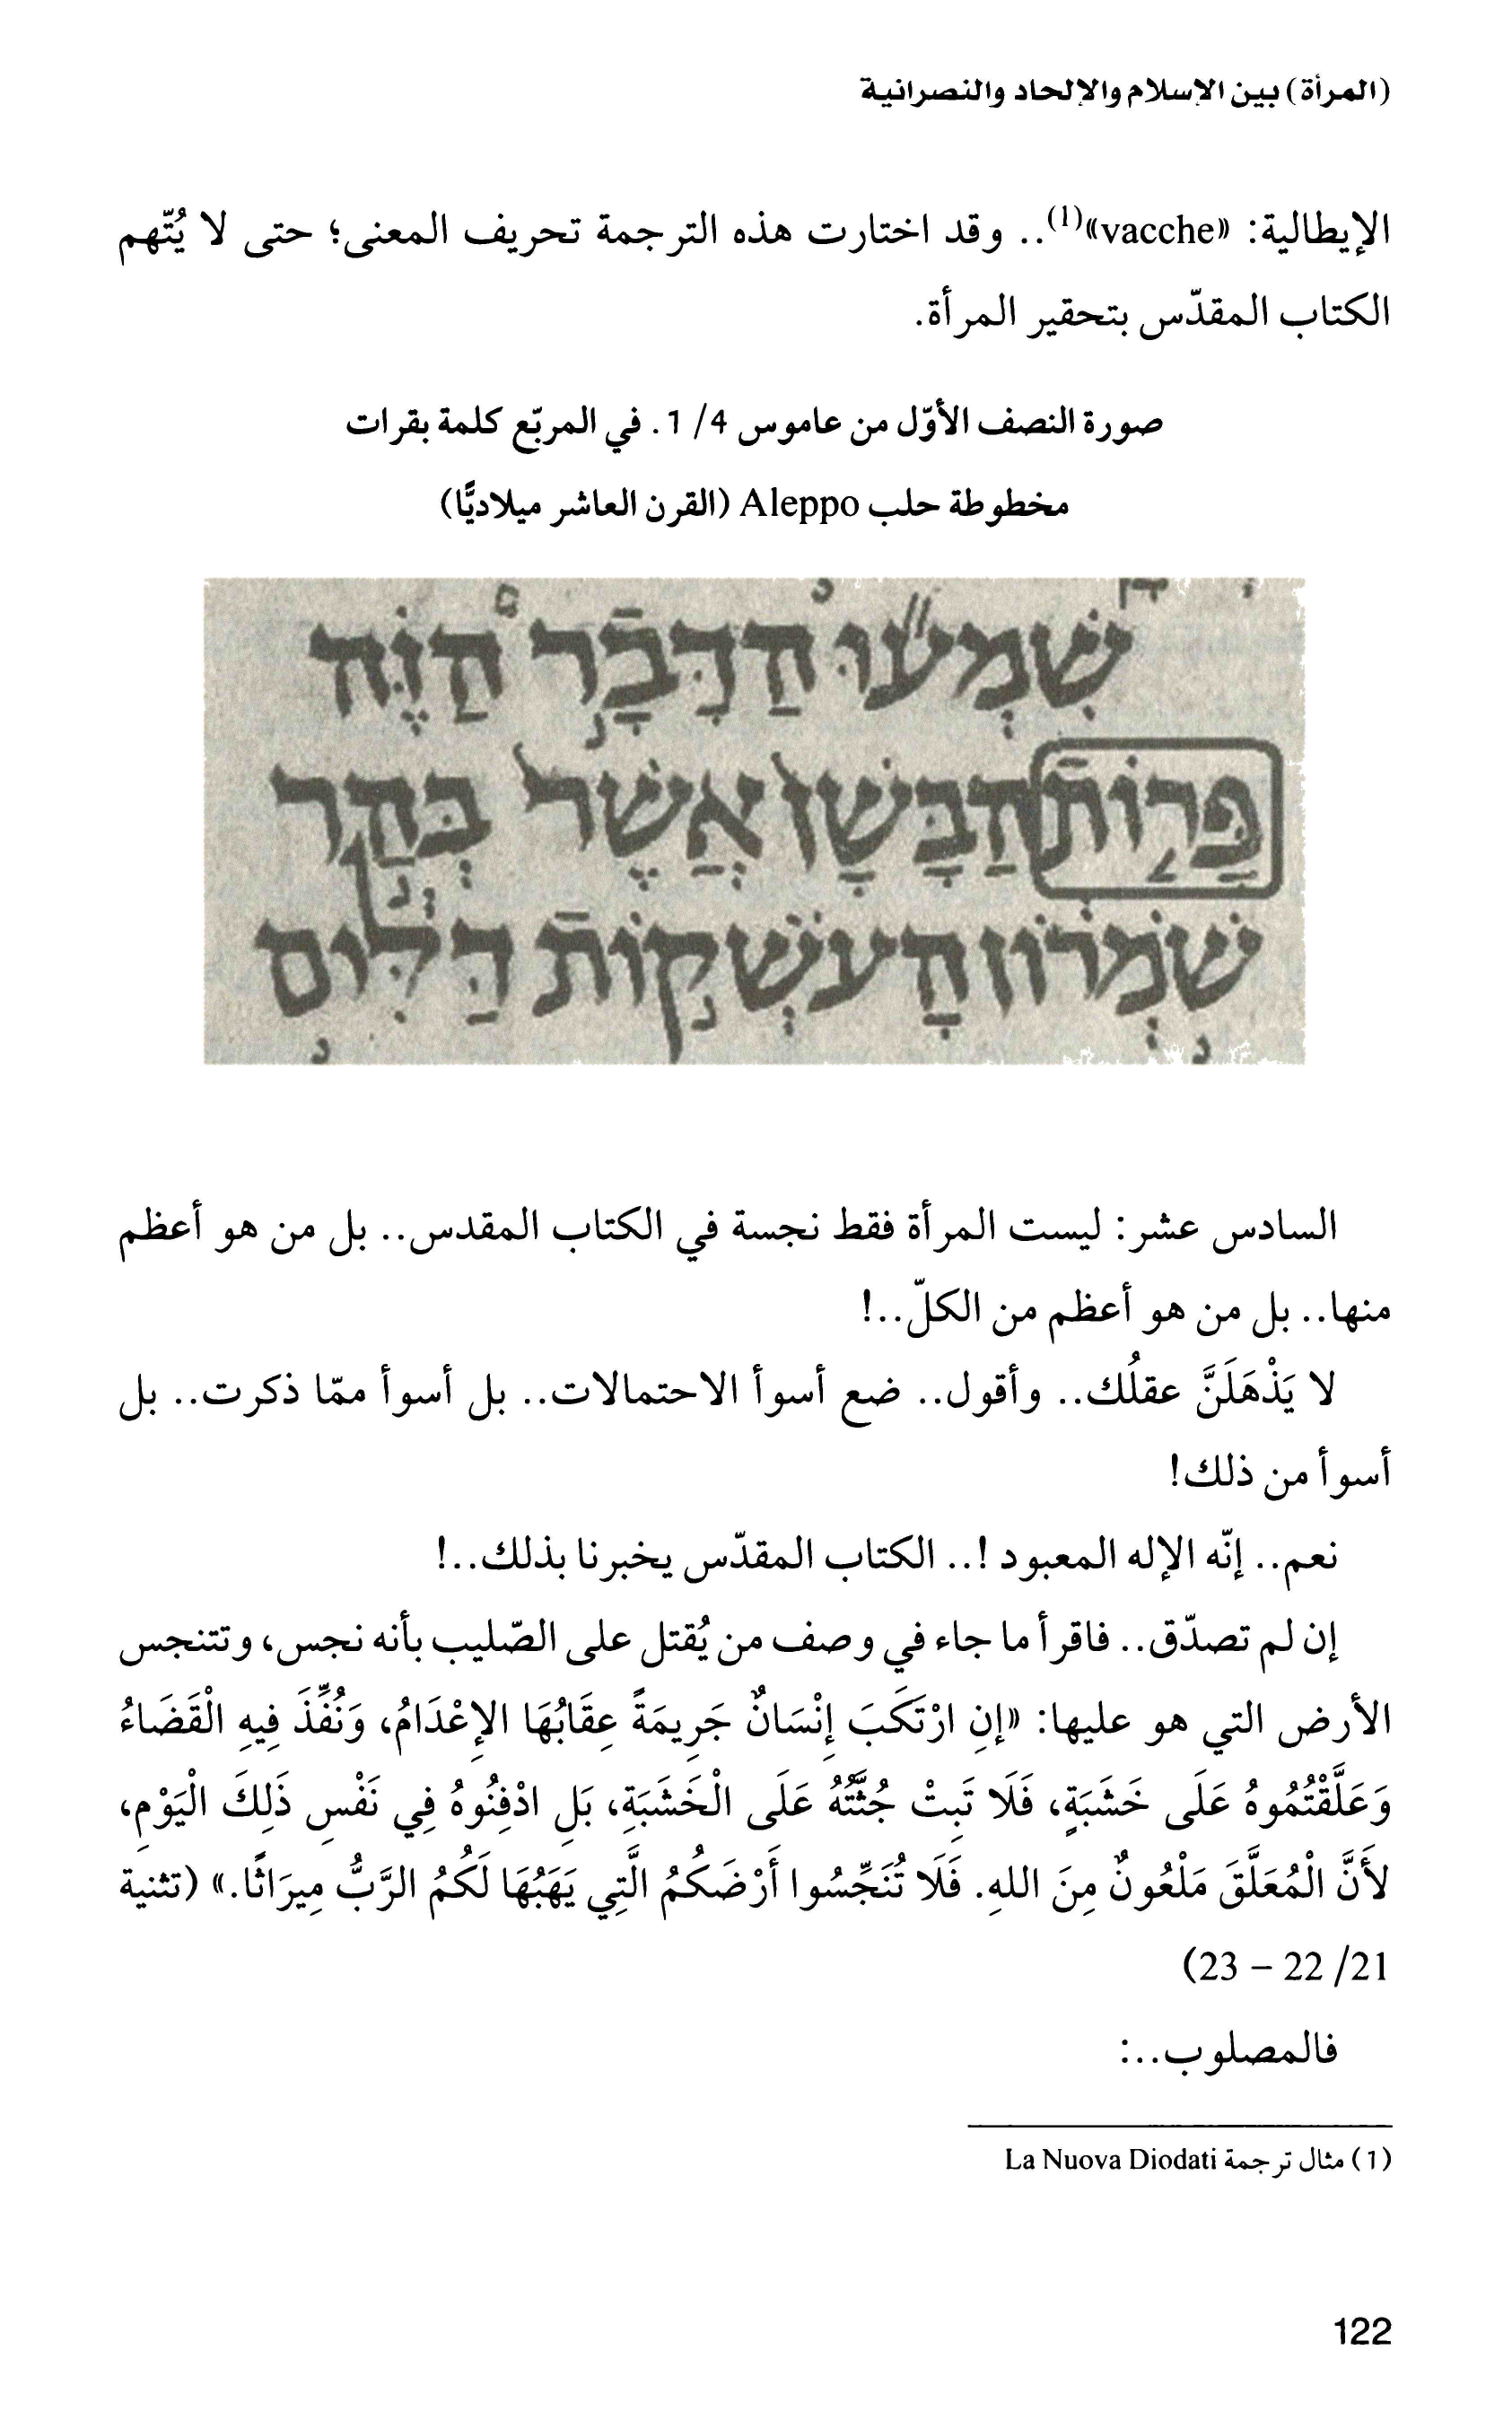 (المرأة) بين الإسلام والإلحاد والنصرانية
الإيطالية: «vacche»(1).. وقد اختارت هذه الترجمة تحريف المعنى؛ حتى لا يُتّهم
الكتاب المقدّس بتحقير المرأة.
صورة النصف الأوّل من عاموس 4/ 1. في المربّع كلمة بقرات
مخطوطة حلب Aleppo (القرن العاشر ميلاديًّا)
שִׁמְעוּ הַדָּבָר הַזֶּה
פָּרוֹת הַבָּשָׁן אֲשֶׁר בְּהַר
שֹׁמְרוֹן הָעֹשְׁקוֹת דַּלִּים
السادس عشر: ليست المرأة فقط نجسة في الكتاب المقدس.. بل من هو أعظم
منها.. بل من هو أعظم من الكلّ..!
لا يَذْهَلَنَّ عقلُك.. وأقول.. ضع أسوأ الاحتمالات.. بل أسوأ ممّا ذكرت.. بل
أسوأ من ذلك!
نعم.. إنّه الإله المعبود !.. الكتاب المقدّس يخبرنا بذلك..!
إن لم تصدّق.. فاقرأ ما جاء في وصف من يُقتل على الصّليب بأنه نجس، وتتنجس
الأرض التي هو عليها: «إِنِ ارْتَكَبَ إِنْسَانٌ جَرِيمَةً عِقَابُهَا الإِعْدَامُ، وَنُفِّذَ فِيهِ الْقَضَاءُ
وَعَلَّقْتُمُوهُ عَلَى خَشَبَةٍ، فَلَا تَبِتْ جُثَّتُهُ عَلَى الْخَشَبَةِ، بَلِ ادْفِنُوهُ فِي نَفْسِ ذَلِكَ الْيَوْمِ،
لأَنَّ الْمُعَلَّقَ مَلْعُونٌ مِنَ اللهِ. فَلَا تُنَجِّسُوا أَرْضَكُمُ الَّتِي يَهَبُهَا لَكُمُ الرَّبُّ مِيرَاثًا.» (تثنية
21/ 22 – 23)
فالمصلوب..:
(1) مثال ترجمة La Nuova Diodati
122